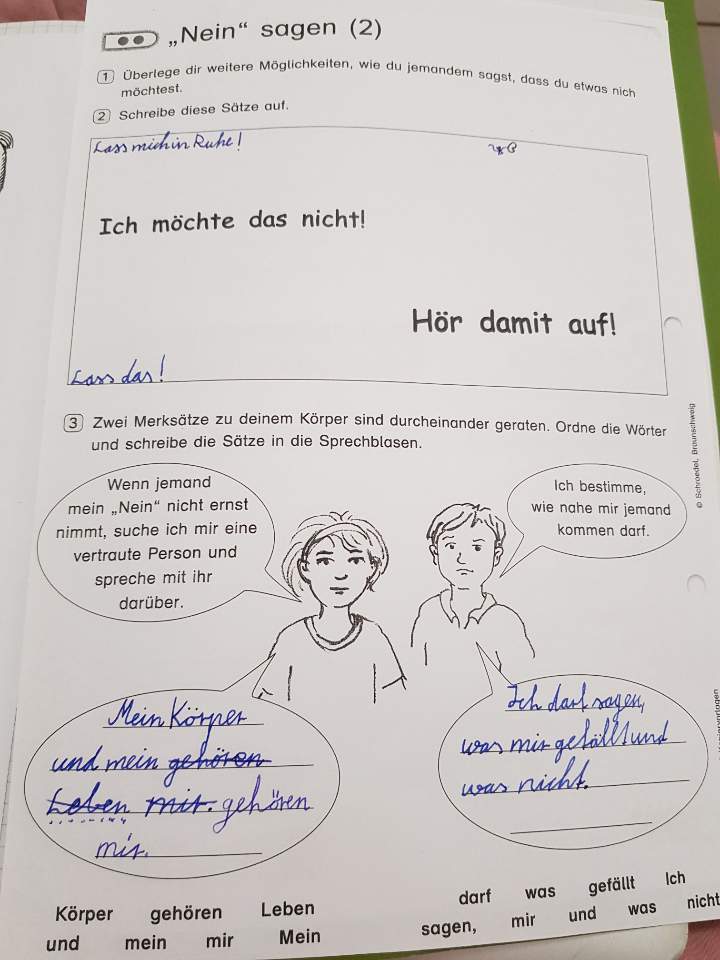 „Nein“ sagen (2)
1 Überlege dir weitere Möglichkeiten, wie du jemandem sagst, dass du etwas nich
möchtest.
2 Schreibe diese Sätze auf.
Lass mich in Ruhe!
Ich möchte das nicht!
Hör damit auf!
Lass das!
3 Zwei Merksätze zu deinem Körper sind durcheinander geraten. Ordne die Wörter
und schreibe die Sätze in die Sprechblasen.
© Schroedel, Braunschweig
Wenn jemand
mein „Nein“ nicht ernst
nimmt, suche ich mir eine
vertraute Person und
spreche mit ihr
darüber.
Ich bestimme,
wie nahe mir jemand
kommen darf.
Mein Körper
und mein gehören
Leben mir. gehören
mir.
Ich darf sagen,
was mir gefällt und
was nicht.
Körper gehören Leben
und mein mir Mein
darf was gefällt Ich
sagen, mir und was nicht